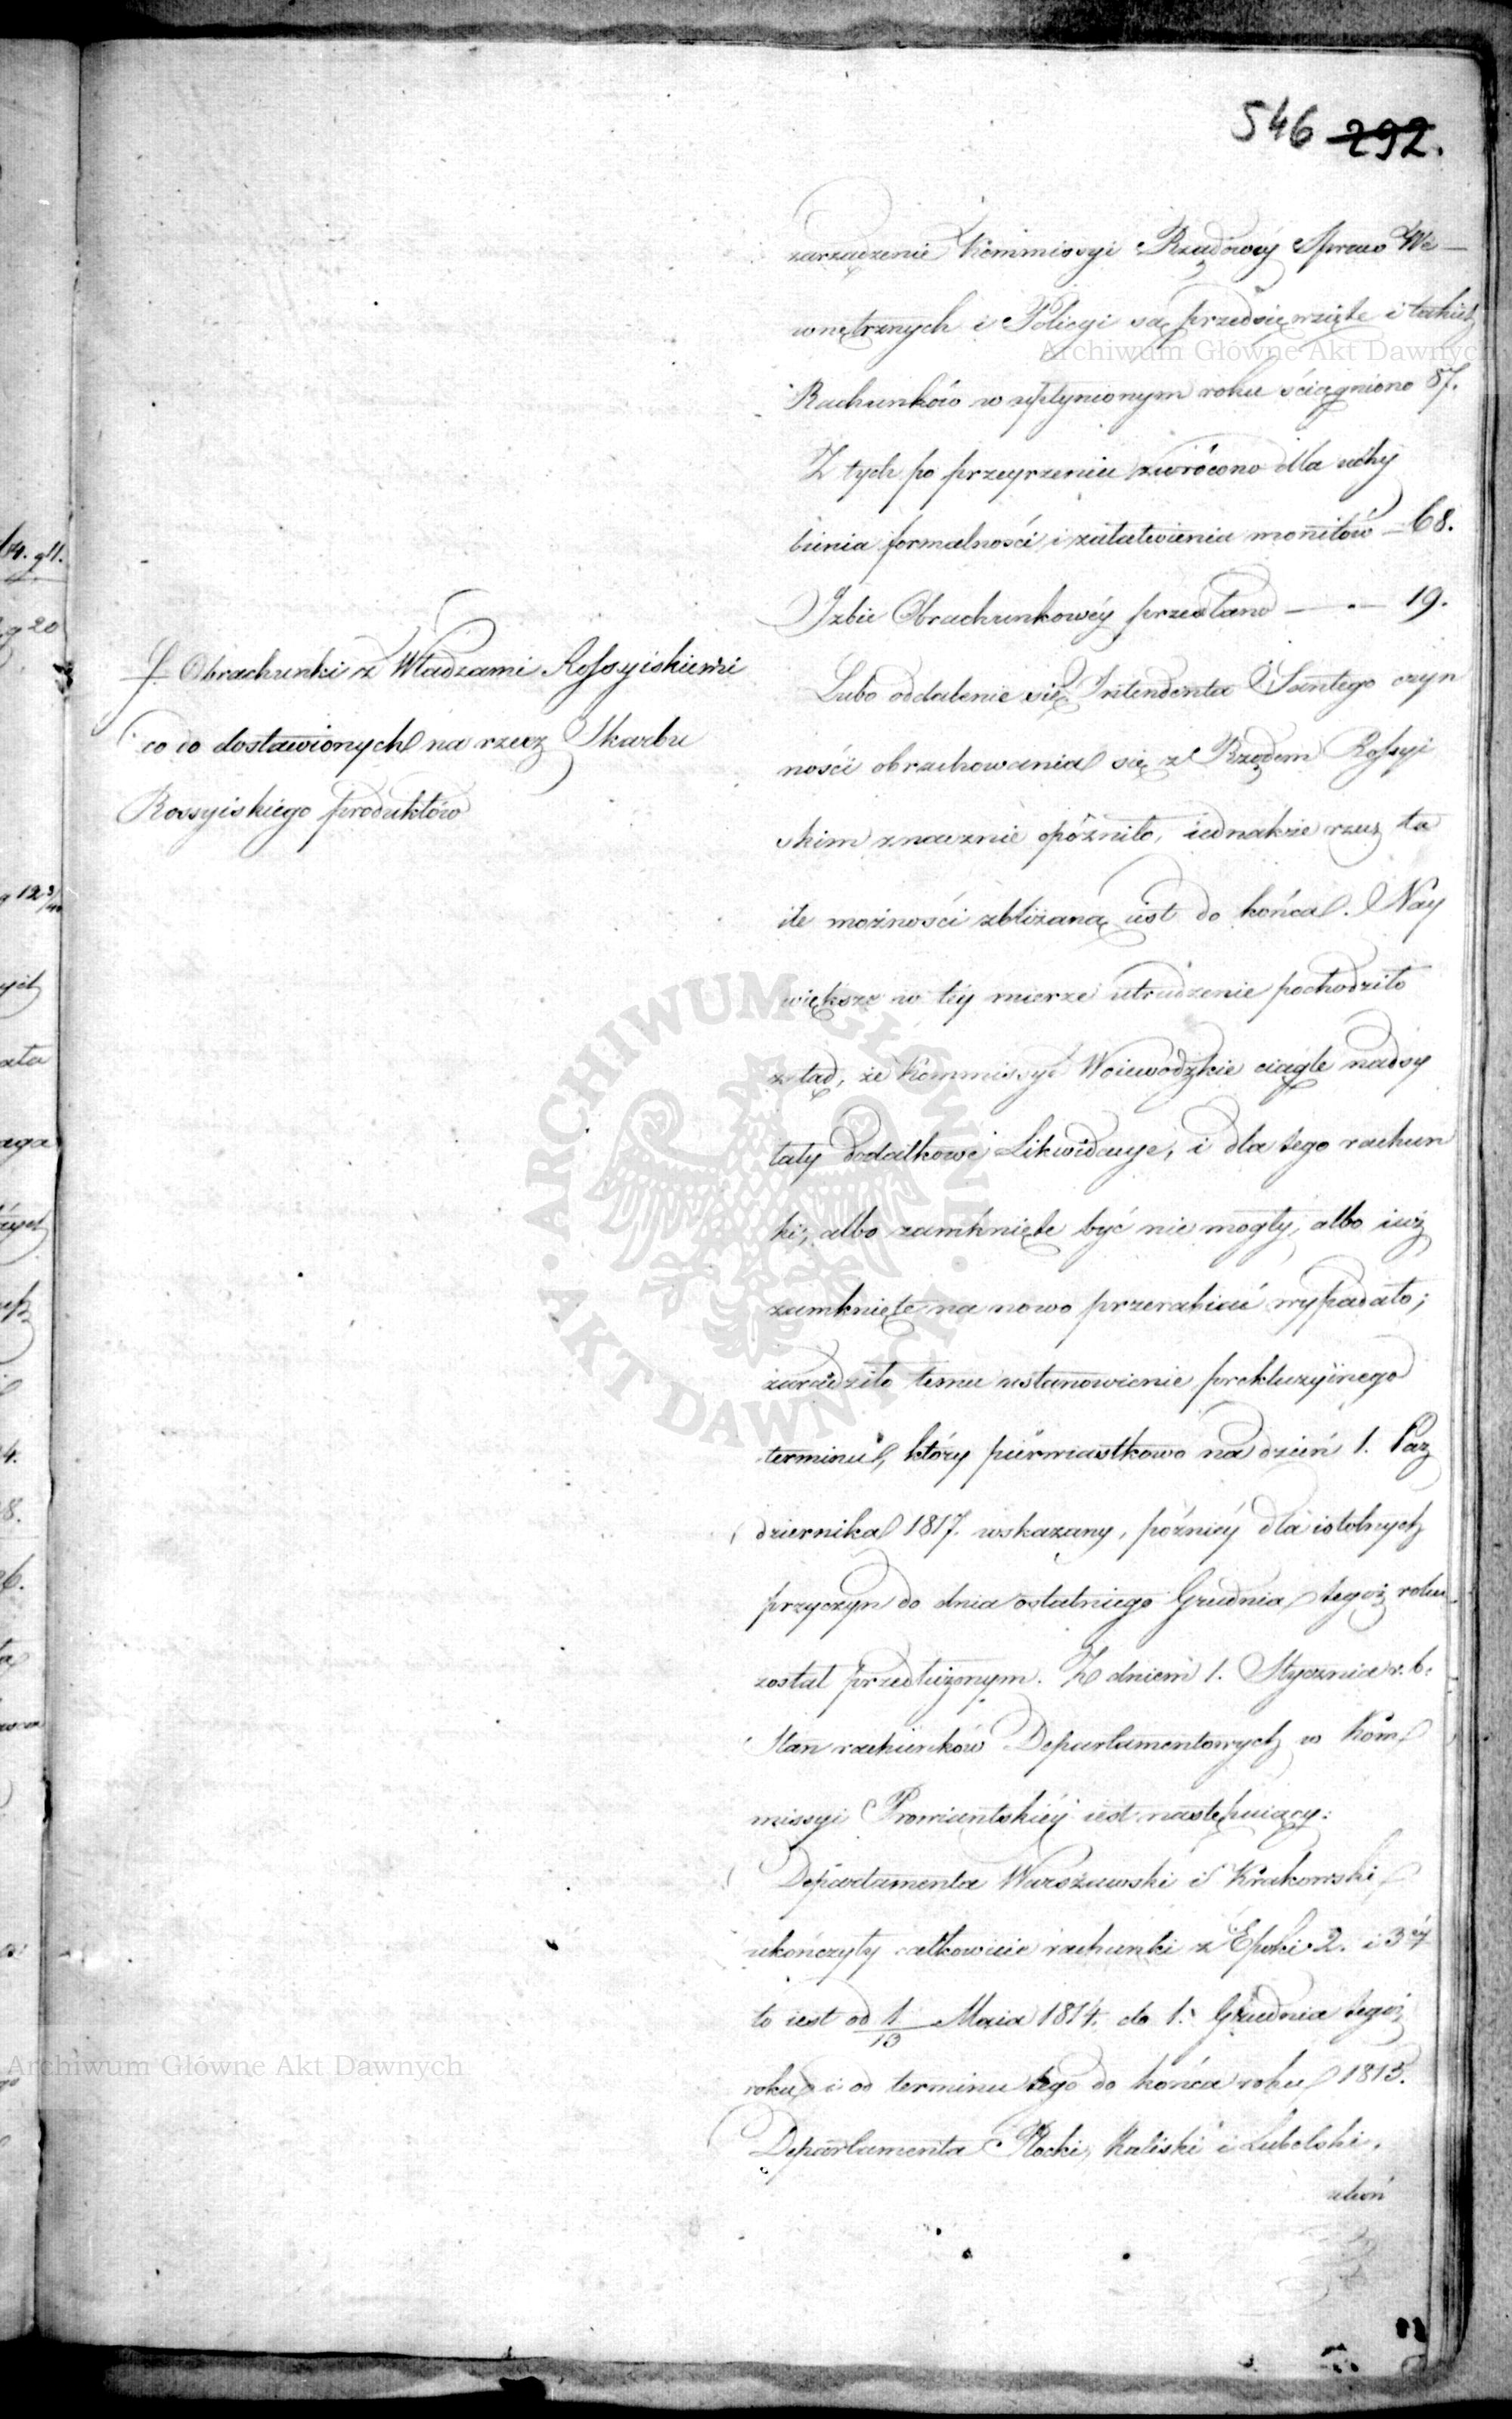 546 292.
zarządzenie Kommissyi Rządowéy Spraw We-
wnętrznych i Policyi są przedsięwzięte i takich
Rachunków w upłynionym roku ściągniono 87.
Z tych po przeyrzeniu zwrócono dla uchy
bienia formalności i załatwienia monitów - 68.
Izbie Obrachunkowéy przesłano - 19.
f. Obrachunki z Władzami Rossyiskiemi
co do dostawionych na rzecz Skarbu
Rossyiskiego produktów
Lubo oddalenie się Intendenta Santego czyn
ności obrachowania się z Rządem Rossyi
skim znacznie opóźniło, iednakże rzecz ta
ile możności zbliżana iest do końca. Nay
większe w téy mierze utrudzenie pochodziło
ztąd, że Kommissye Woiewódzkie ciągle nadsy
łały dodatkowe Likwidacye, i dla tego rachun
ki, albo zamknięte być nie mogły, albo iuż
zamknięte na nowo przerabiać wypadało;
zaradziło temu ustanowienie prekluzyinego
terminu, który piérwiastkowo na dzień 1. Paź
dziernika 1817. wskazany, późniéy dla istotnych
przyczyn do dnia ostatniego Grudnia tegoż roku
został przedłużonym. Z dniem 1. Stycznia r. b.
Stan rachunków Departamentowych w Kom
missyi Prowiantskiéy iest następuiący:
Departamenta Warszawski i Krakowski
ukończyły całkowicie rachunki z Epoki 2. i 3éy
to iest od 1/13 Maia 1814. do 1. Grudnia tegoż
roku i od terminu tego do końca roku 1815.
Departamenta Płocki, Kaliski i Lubelski,
ukoń
Archiwum Główne Akt Dawnych
Archiwum Główne Akt Dawnych
ARCHIWUM GŁÓWNE AKT DAWNYCH